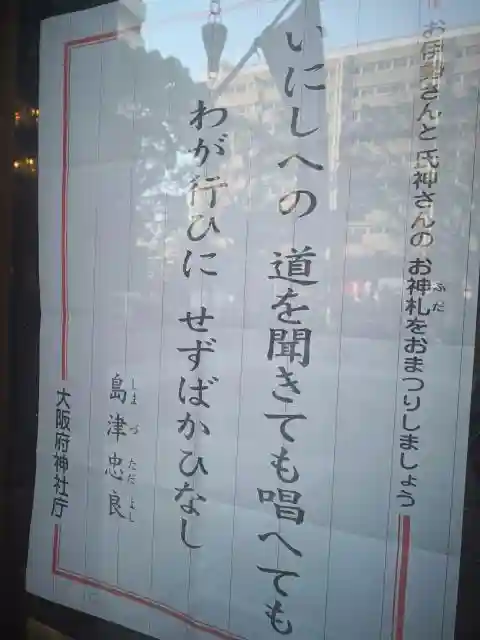 お伊勢さんと氏神さんの お神札をおまつりしましょう
ふだ
いにしへの 道を聞きても唱へても
わが行ひに せずばかひなし
島津忠良
しま づ ただ よし
大阪府神社庁